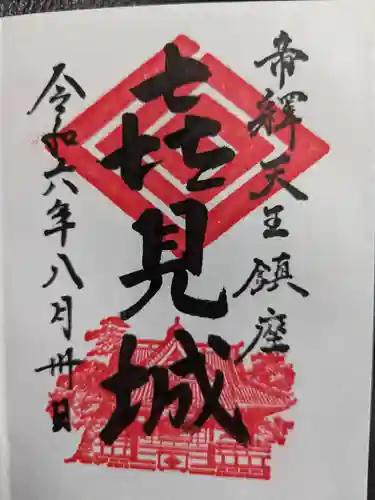 帝釋天王鎮座
㐂見城
令和六年八月卅日